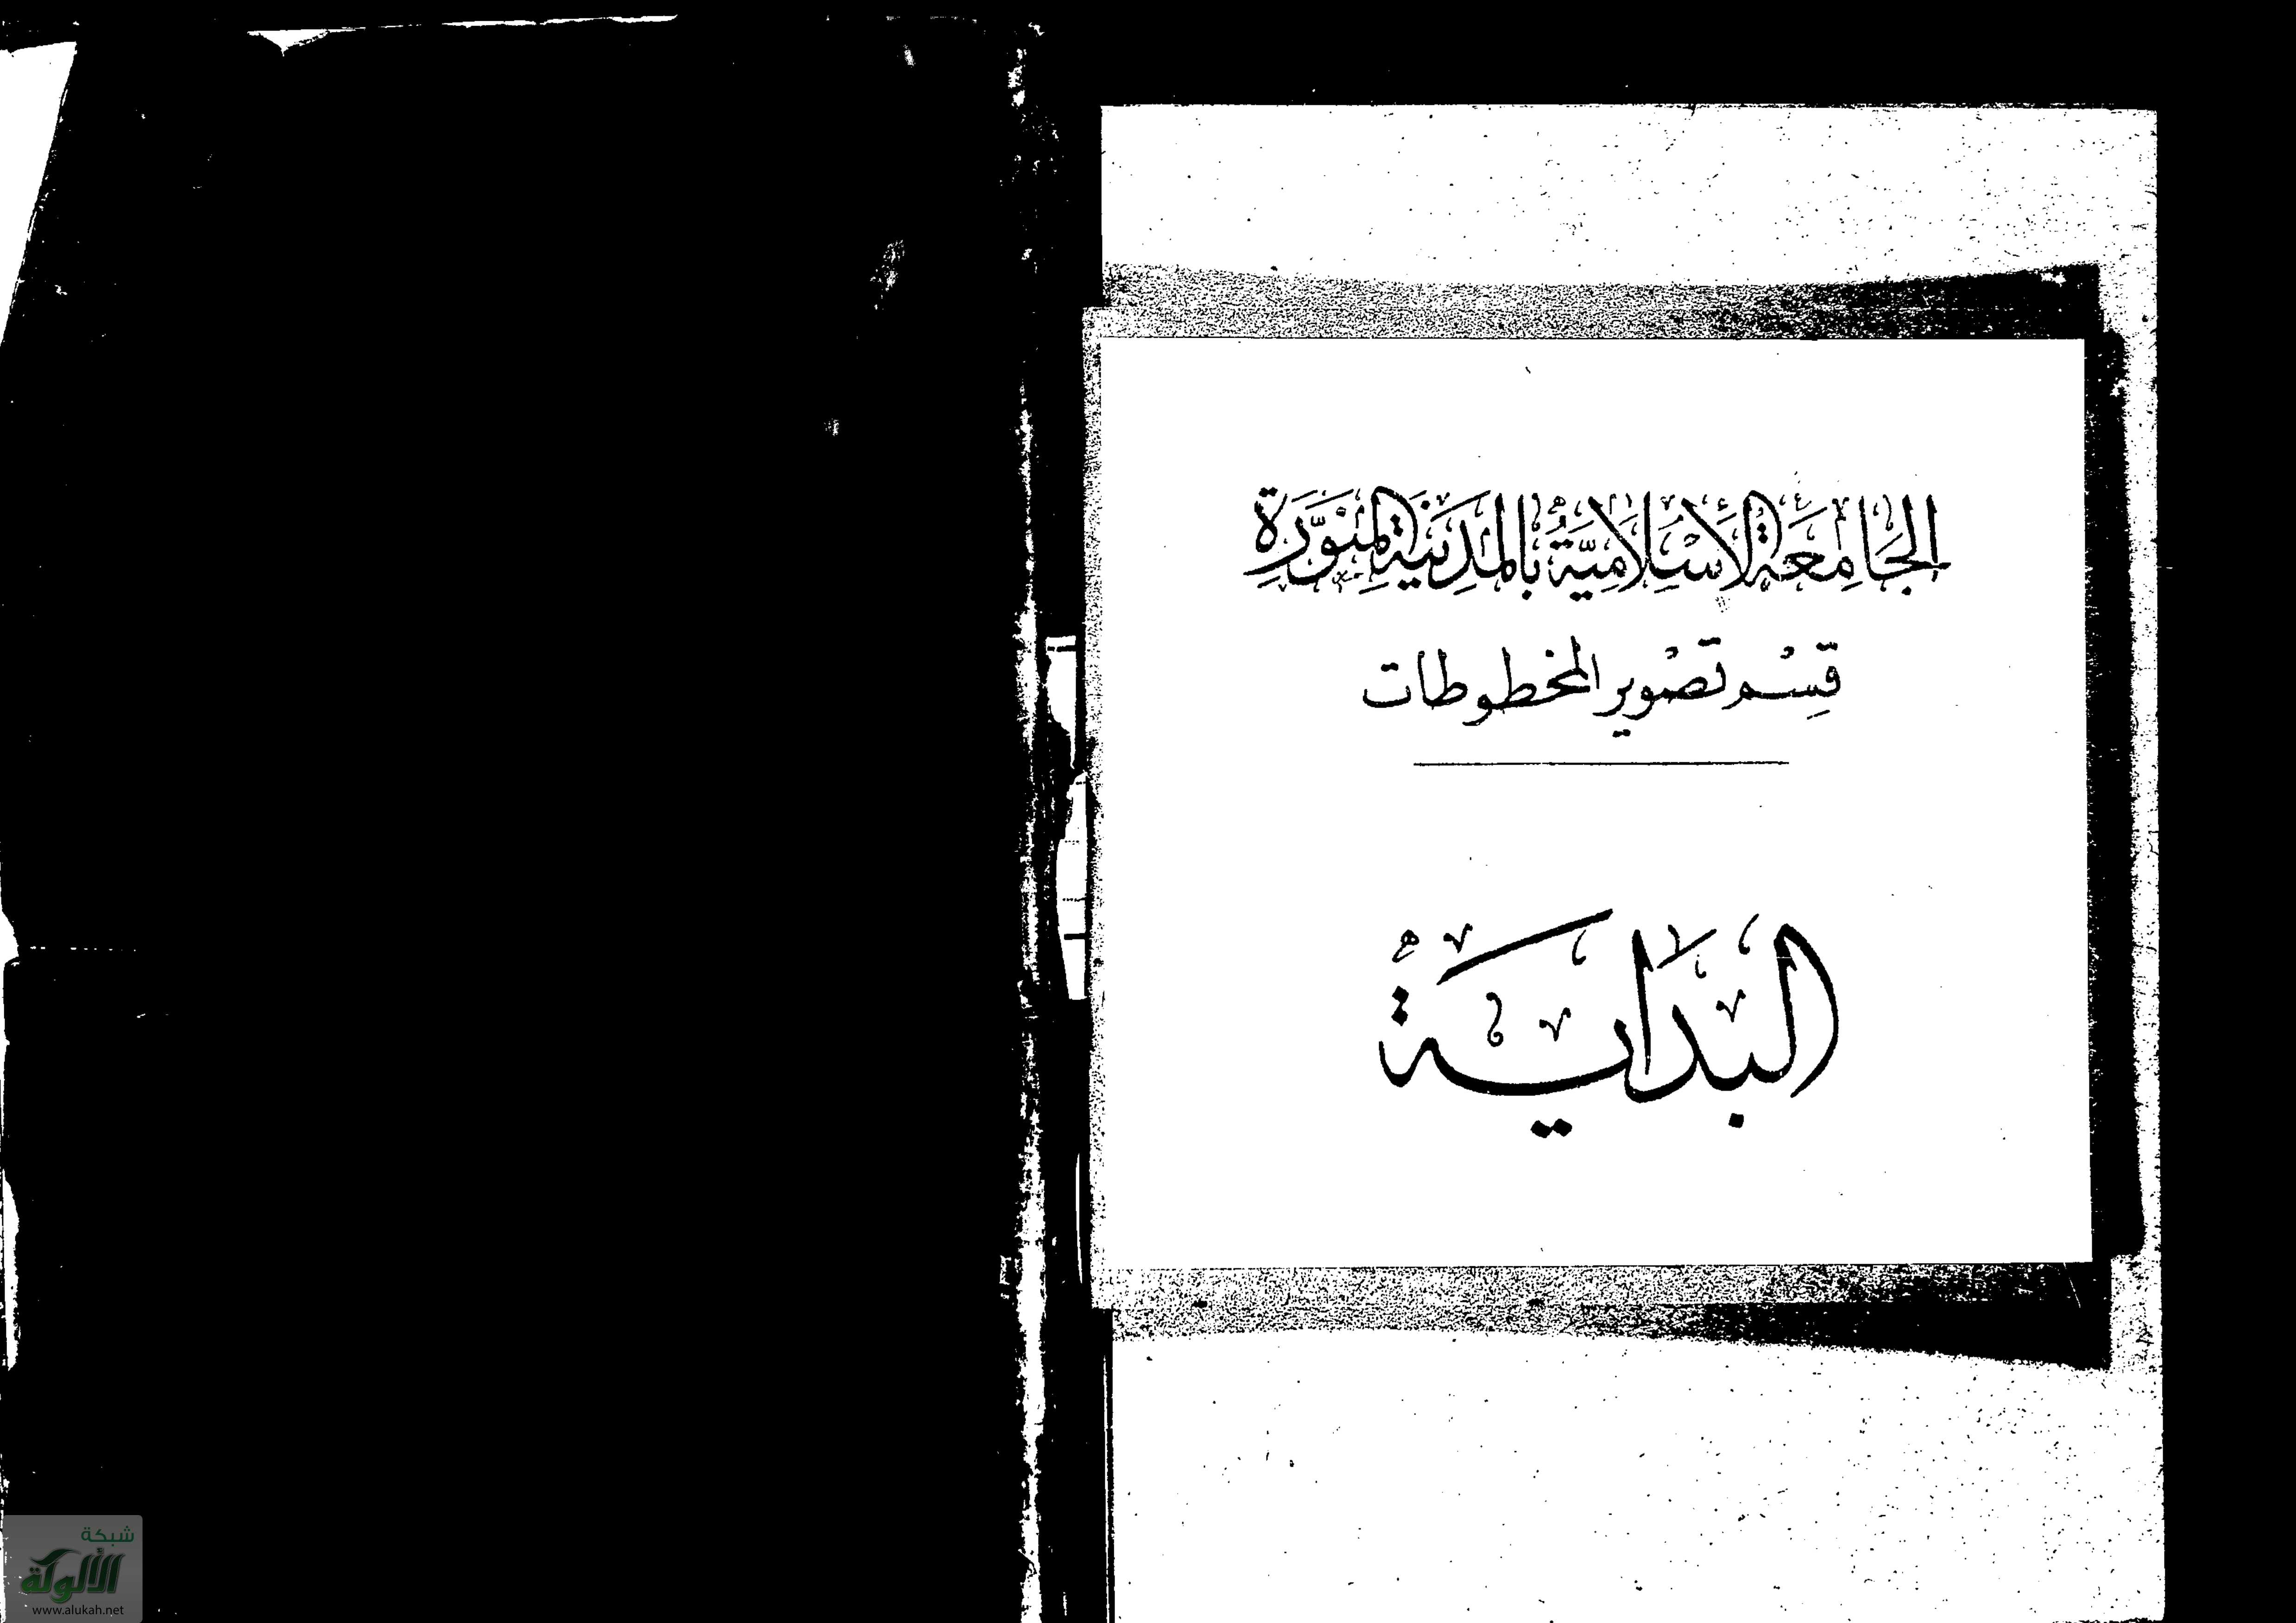 الجَامِعَةُ الإِسْلَامِيَّةُ بالمَدِينَةِ المُنَوَّرَةِ
قِسْم تَصْوير المخطوطات
البَدَايَةُ
شبكة
الألوكة
www.alukah.net